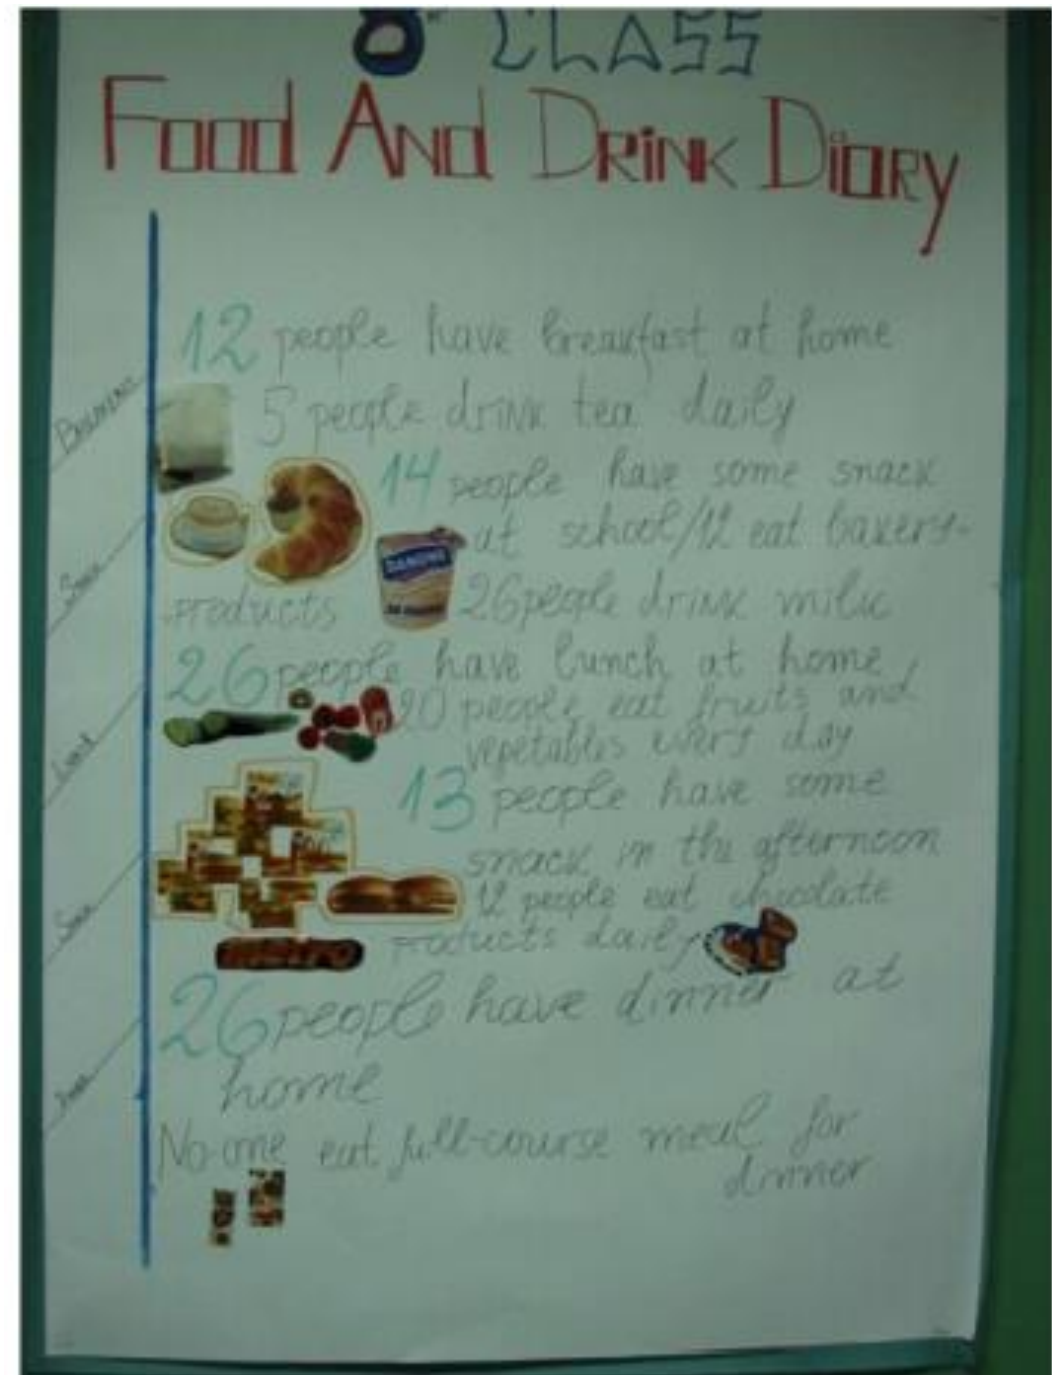 8th CLASS
Food And Drink Diary
12 people have breakfast at home
5 people drink tea daily
14 people have some snack
at school/12 eat bakery-
products
26 people drink milk
26 people have lunch at home,
20 people eat fruits and
vegetables every day
13 people have some
snack in the afternoon
12 people eat chocolate
products daily
26 people have dinner at
home
No one eat full-course meal for
dinner
Snack
Lunch
Snack
Dinner
DANONE